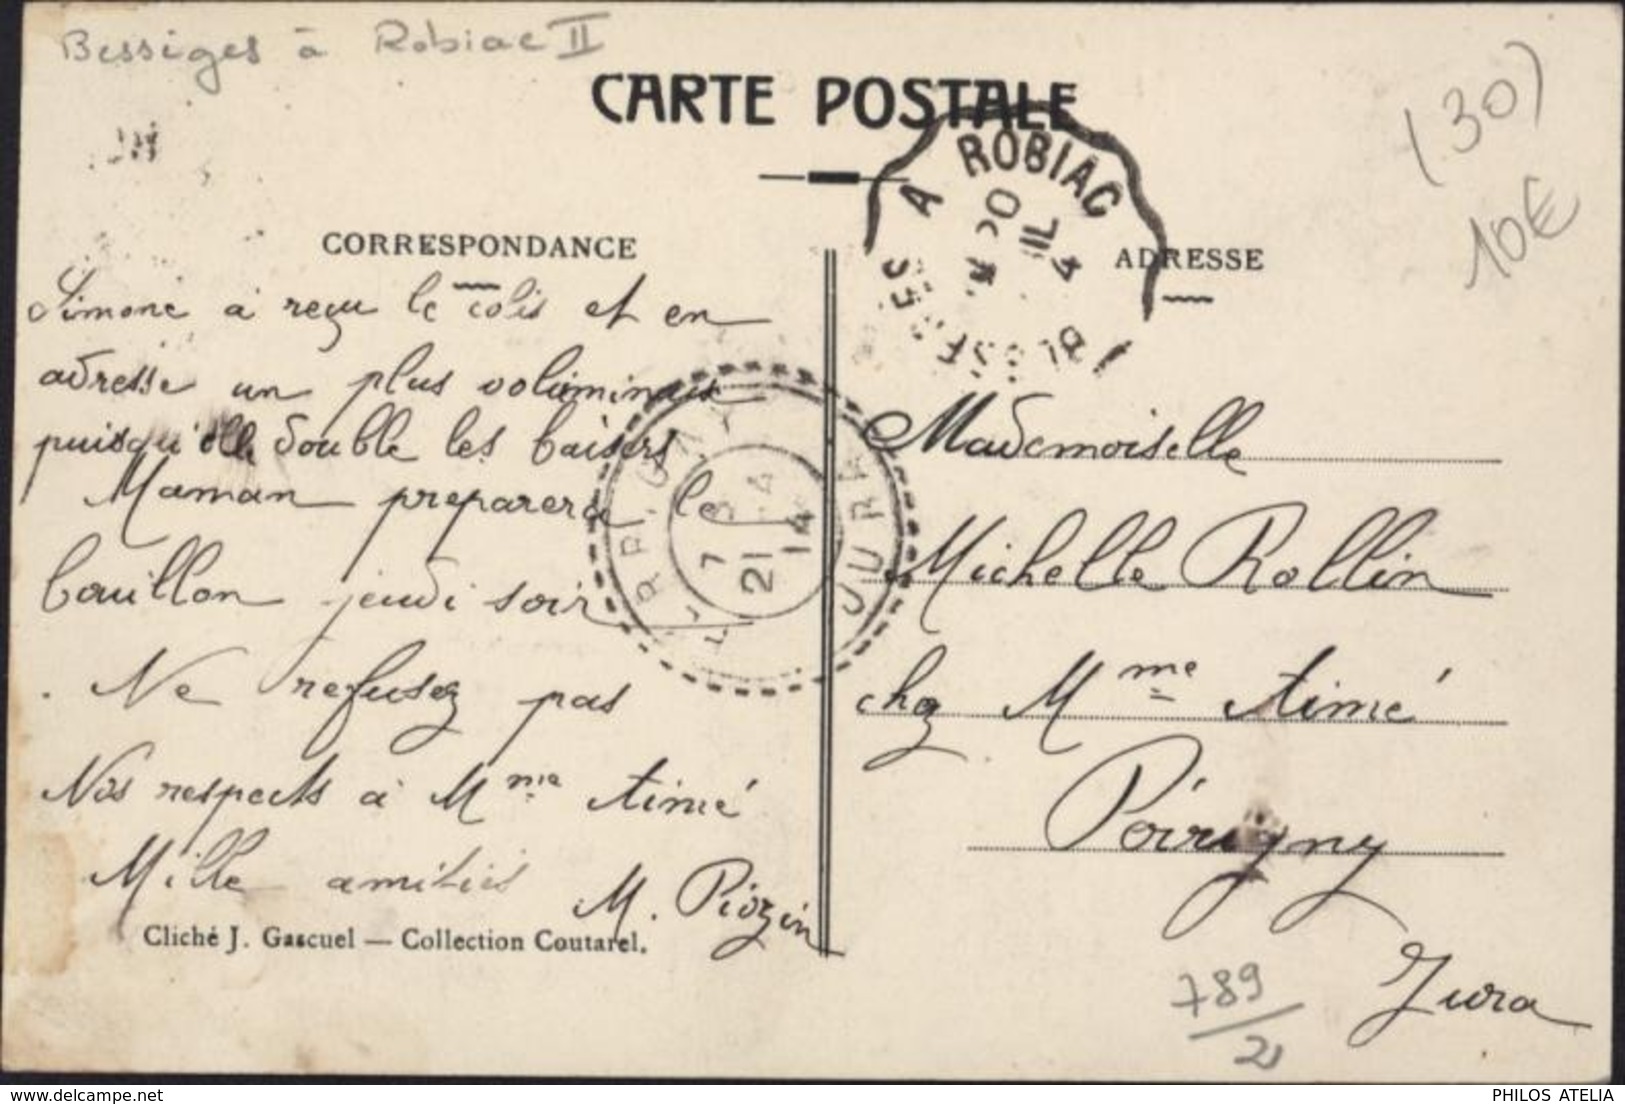 Bessèges à Robiac II
CARTE POSTALE
(30)
10€
A ROBIAC
20
4
CORRESPONDANCE
ADRESSE
Simone a reçu le colis et en
adresse un plus volumineux
puisqu'elle double les baisers
Maman preparera le
bouillon jeudi soir
Ne refusez pas
Nos respects à Mme Aimé
Mille amitiés
M. Piozin
Cliché J. Gascuel — Collection Coutarel.
21 4
14
JURA
Mademoiselle
Michelle Rollin
chez Mme Aimé
Perrigny
Jura
789/2
PHILOS ATELIA